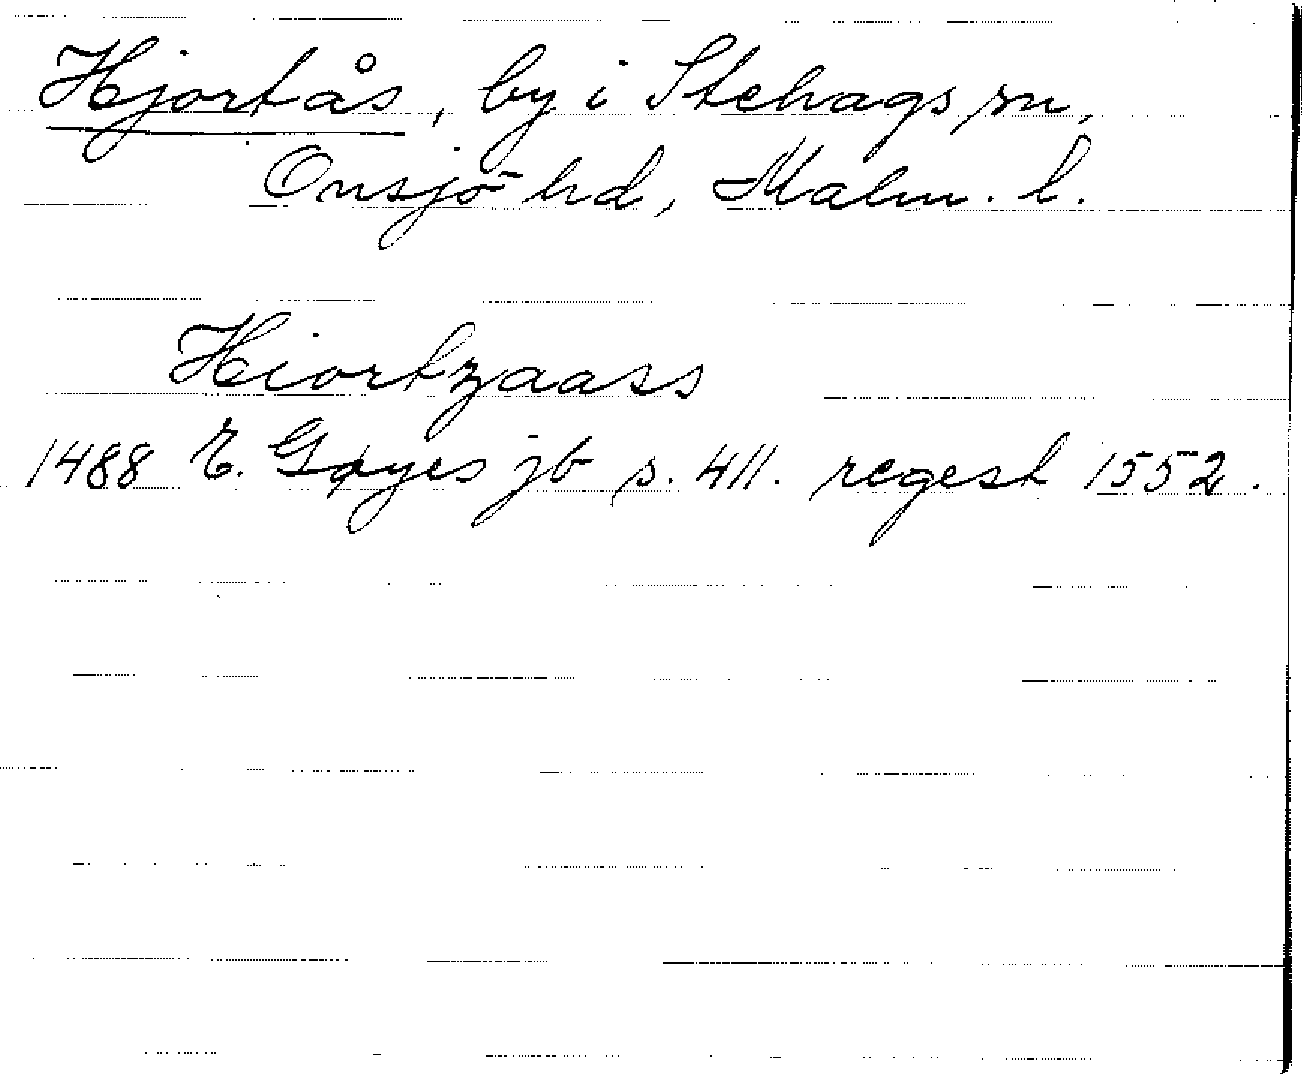 Hjortås, by i Stehags sn,
Onsjö hd, Malm. l.
Hiortzaass
1488 E. Gøyes jb s. 411. regest 1552.